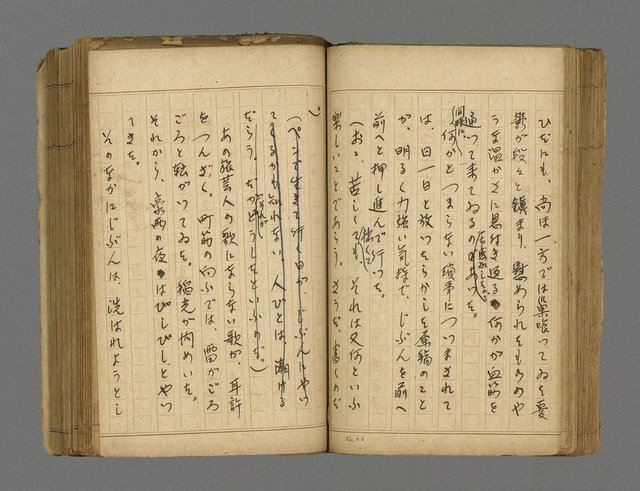 ひだにも、尚ほ一方では巣喰つてゐる憂
鬱が段々と鎮まり、慰められたもののや
うな温かさに息付き返る何かが血筋を
通つて来てゐるのであつた。
同時に、何かとつまらない瑣事につつまされて
は、日一日と放つたらかした原稿のこと
が、明るく力強い気持で、じぶんを前へ
前へと押し進んで行つた。
(おゝ、苦しくても、それは又何といふ
楽しいことであらう。さうだ、書くのだ
)
(ペンで生きて行く日が、じぶんにやつ
てくるかも知れない。人びとは、嘲ける
だらう。だがどうしたといふのだ。)
あの旅芸人の歌にならない歌が、耳許
をつんざく。町筋の向ふでは、雷がごろ
ごろと転がつてゐた。稲光が閃めいた。
それから、豪雨の夜はぴしぴしとやつ
てきた。
そのなかにじぶんは、洗はれようとし